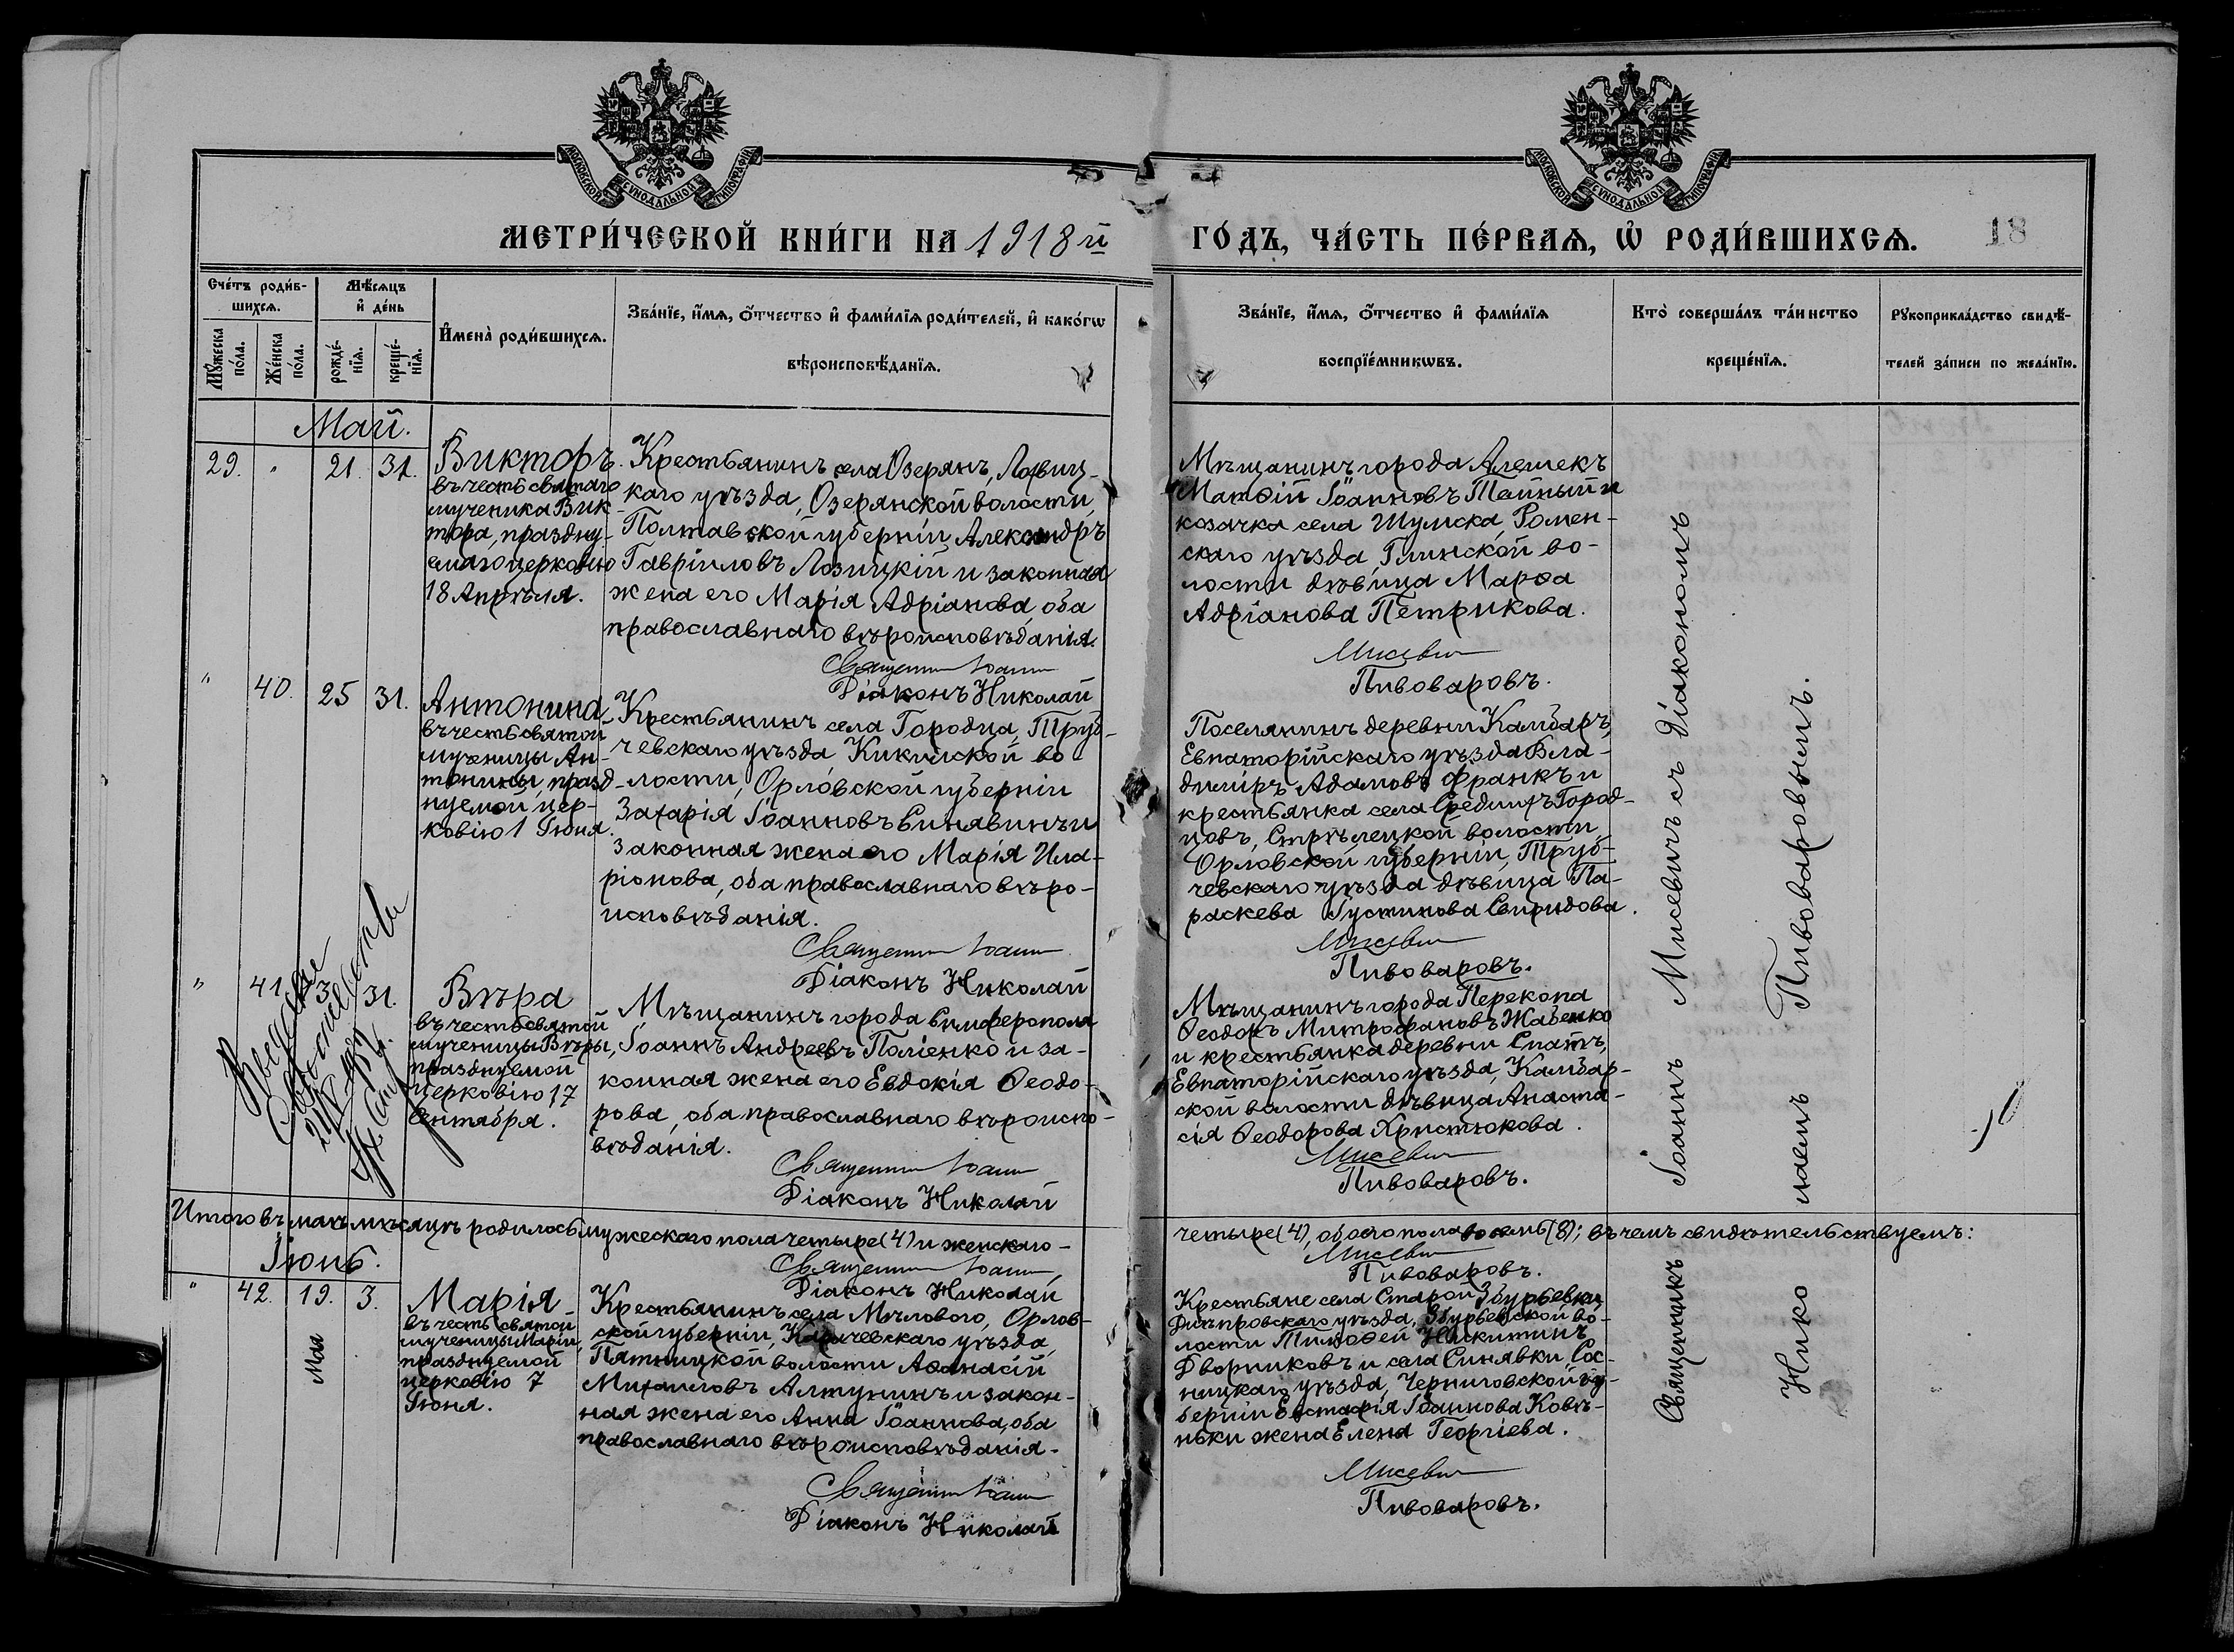 МОСКОВСКОЙ СУНОДАЛЬНОЙ ТИПОГРАФІИ
МОСКОВСКОЙ СУНОДАЛЬНОЙ ТИПОГРАФІИ
МЕТРИ́ЧЕСКОЙ КНИ́ГИ НА 1918 й
ГО́ДЪ, ЧА́СТЬ ПЕ́РВАѦ, Ѡ҆ РОДИ́ВШИХСѦ.
18
Сче́тъ роди́в-
шихсѧ.
Мѣ́сѧцъ
и҆ де́нь
Мꙋ́жеска
по́ла.
Же́нска
по́ла.
рожде́-
нїѧ.
креще́-
нїѧ.
И҆мена̀ роди́вшихсѧ.
Зва́нїе, и҆́мѧ, ѻ҆́тчество и҆ фами́лїѧ роди́телей, и҆ како́гѡ
вѣроисповѣ́данїѧ.
Зва́нїе, и҆́мѧ, ѻ҆́тчество и҆ фами́лїѧ
воспрїе́мникѡвъ.
Кто̀ соверша́лъ та́инство
креще́нїѧ.
Рꙋкоприкла́дство свидѣ́-
телей за́писи по жела́нїю.
Май.
29. " 21. 31.
Викторъ.
въ честь святаго
мученика Вик-
тора, праздну-
емаго церковію
18 Апрѣля.
Крестьянинъ села Озерянъ, Лохвиц-
каго уѣзда, Озерянской волости,
Полтавской губерніи Александръ
Гавріиловъ Лозицкій и законная
жена его Марія Адріанова, оба
православнаго вѣроисповѣданія.
Священникъ Іоаннъ
Діаконъ Николай
Мѣщанинъ города Алешекъ
Матѳій Іоанновъ Тайный и
козачка села Шумска, Ромен-
скаго уѣзда Глинской во-
лости дѣвица Марѳа
Адріанова Петрикова.
Мисевичъ
Пивоваровъ.
" 40. 25 31.
Антонина
въ честь святой
мученицы Ан-
тонины, празд-
нуемой цер-
ковію 1 Іюня.
Крестьянинъ села Городца, Труб-
чевскаго уѣзда, во
лости, Орловской губерніи
Захарія Іоанновъ Синявинъ и
законная жена его Марія Ила-
ріонова, оба православнаго вѣро-
исповѣданія.
Священникъ Іоаннъ
Діаконъ Николай
Поселянинъ деревни Камбаръ,
Евпаторійскаго уѣзда Вла-
димиръ Адамовъ Франкъ и
крестьянка села Город-
цовъ, Стрѣлецкой волости,
Орловской губерніи, Труб-
чевскаго уѣзда дѣвица Па-
раскева Іустинова Свиридова.
Мисевичъ
Пивоваровъ.
" 41. 31.
Вѣра
въ честь святой
мученицы Вѣры,
празднуемой
церковію 17
Сентября.
Мѣщанинъ города Симферополя
Іоаннъ Андреевъ Поліенко и за-
конная жена его Евдокія Ѳеодо-
рова, оба православнаго вѣроиспо-
вѣданія.
Священникъ Іоаннъ
Діаконъ Николай
Мѣщанинъ города Перекопа
Ѳеодоръ Митрофановъ Жабенко
и крестьянка деревни Спатъ,
Евпаторійскаго уѣзда, Камбар-
ской волости дѣвица Анаста-
сія Ѳеодорова Христюкова.
Мисевичъ
Пивоваровъ.
Итого въ маѣ мѣсяцѣ родилось мужескаго пола четыре (4) и женскаго -
четыре (4), обоего пола восемь (8); въ чемъ свидѣтельствуемъ:
Священникъ Іоаннъ
Діаконъ Николай
Мисевичъ
Пивоваровъ.
Іюнь.
" 42. 19. 3.
Мая
Марія
въ честь святой
мученицы Маріи,
празднуемой
церковію 7
Іюня.
Крестьянинъ села Мѣлового, Орлов-
ской губерніи, Карачевскаго уѣзда,
Пятницкой волости Аѳанасій
Михаиловъ Алтунинъ и закон-
ная жена его Анна Іоаннова, оба
православнаго вѣроисповѣданія.
Священникъ Іоаннъ
Діаконъ Николай
Крестьяне села Старой Збурьевки,
Днѣпровскаго уѣзда, Збурьевской во-
лости Тимоѳей Никитинъ
Дворниковъ и села Синявки, Сос-
ницкаго уѣзда, Черниговской гу-
берніи Евстафія Іоаннова Ковѣ-
ньки жена Елена Георгіева.
Мисевичъ
Пивоваровъ.
Священникъ Іоаннъ Мисевичъ съ Діакономъ
Николаемъ Пивоваровымъ.